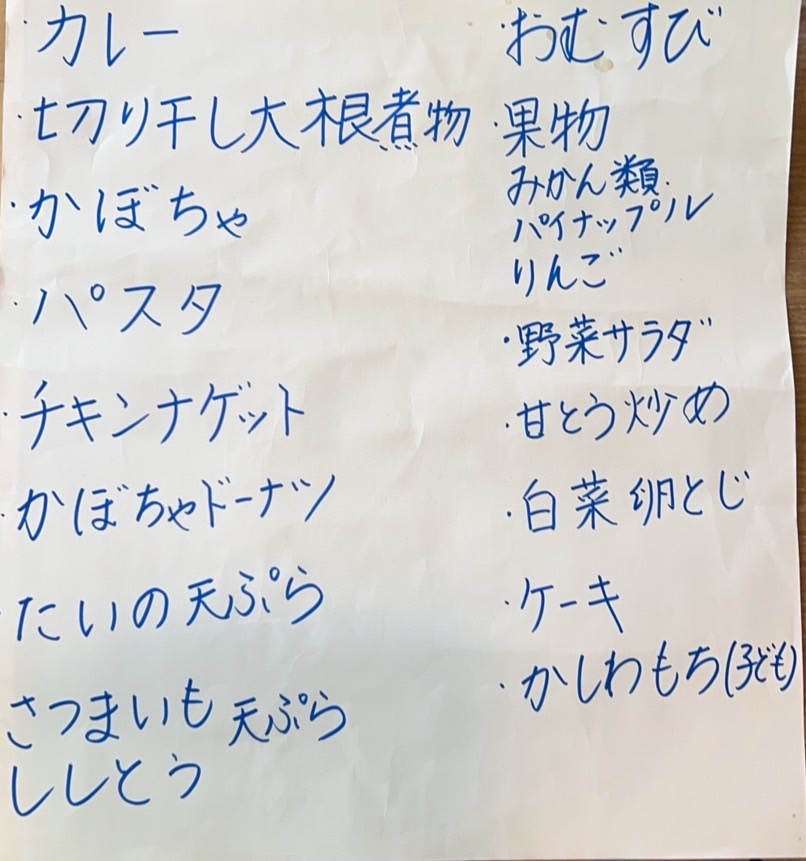 ・カレー
・切り干し大根煮物
・かぼちゃ
・パスタ
・チキンナゲット
・かぼちゃドーナツ
・たいの天ぷら
さつまいも天ぷら
ししとう
・おむすび
・果物
みかん類
パイナップル
りんご
・野菜サラダ
・甘とう炒め
・白菜卵とじ
・ケーキ
・かしわもち(子ども)